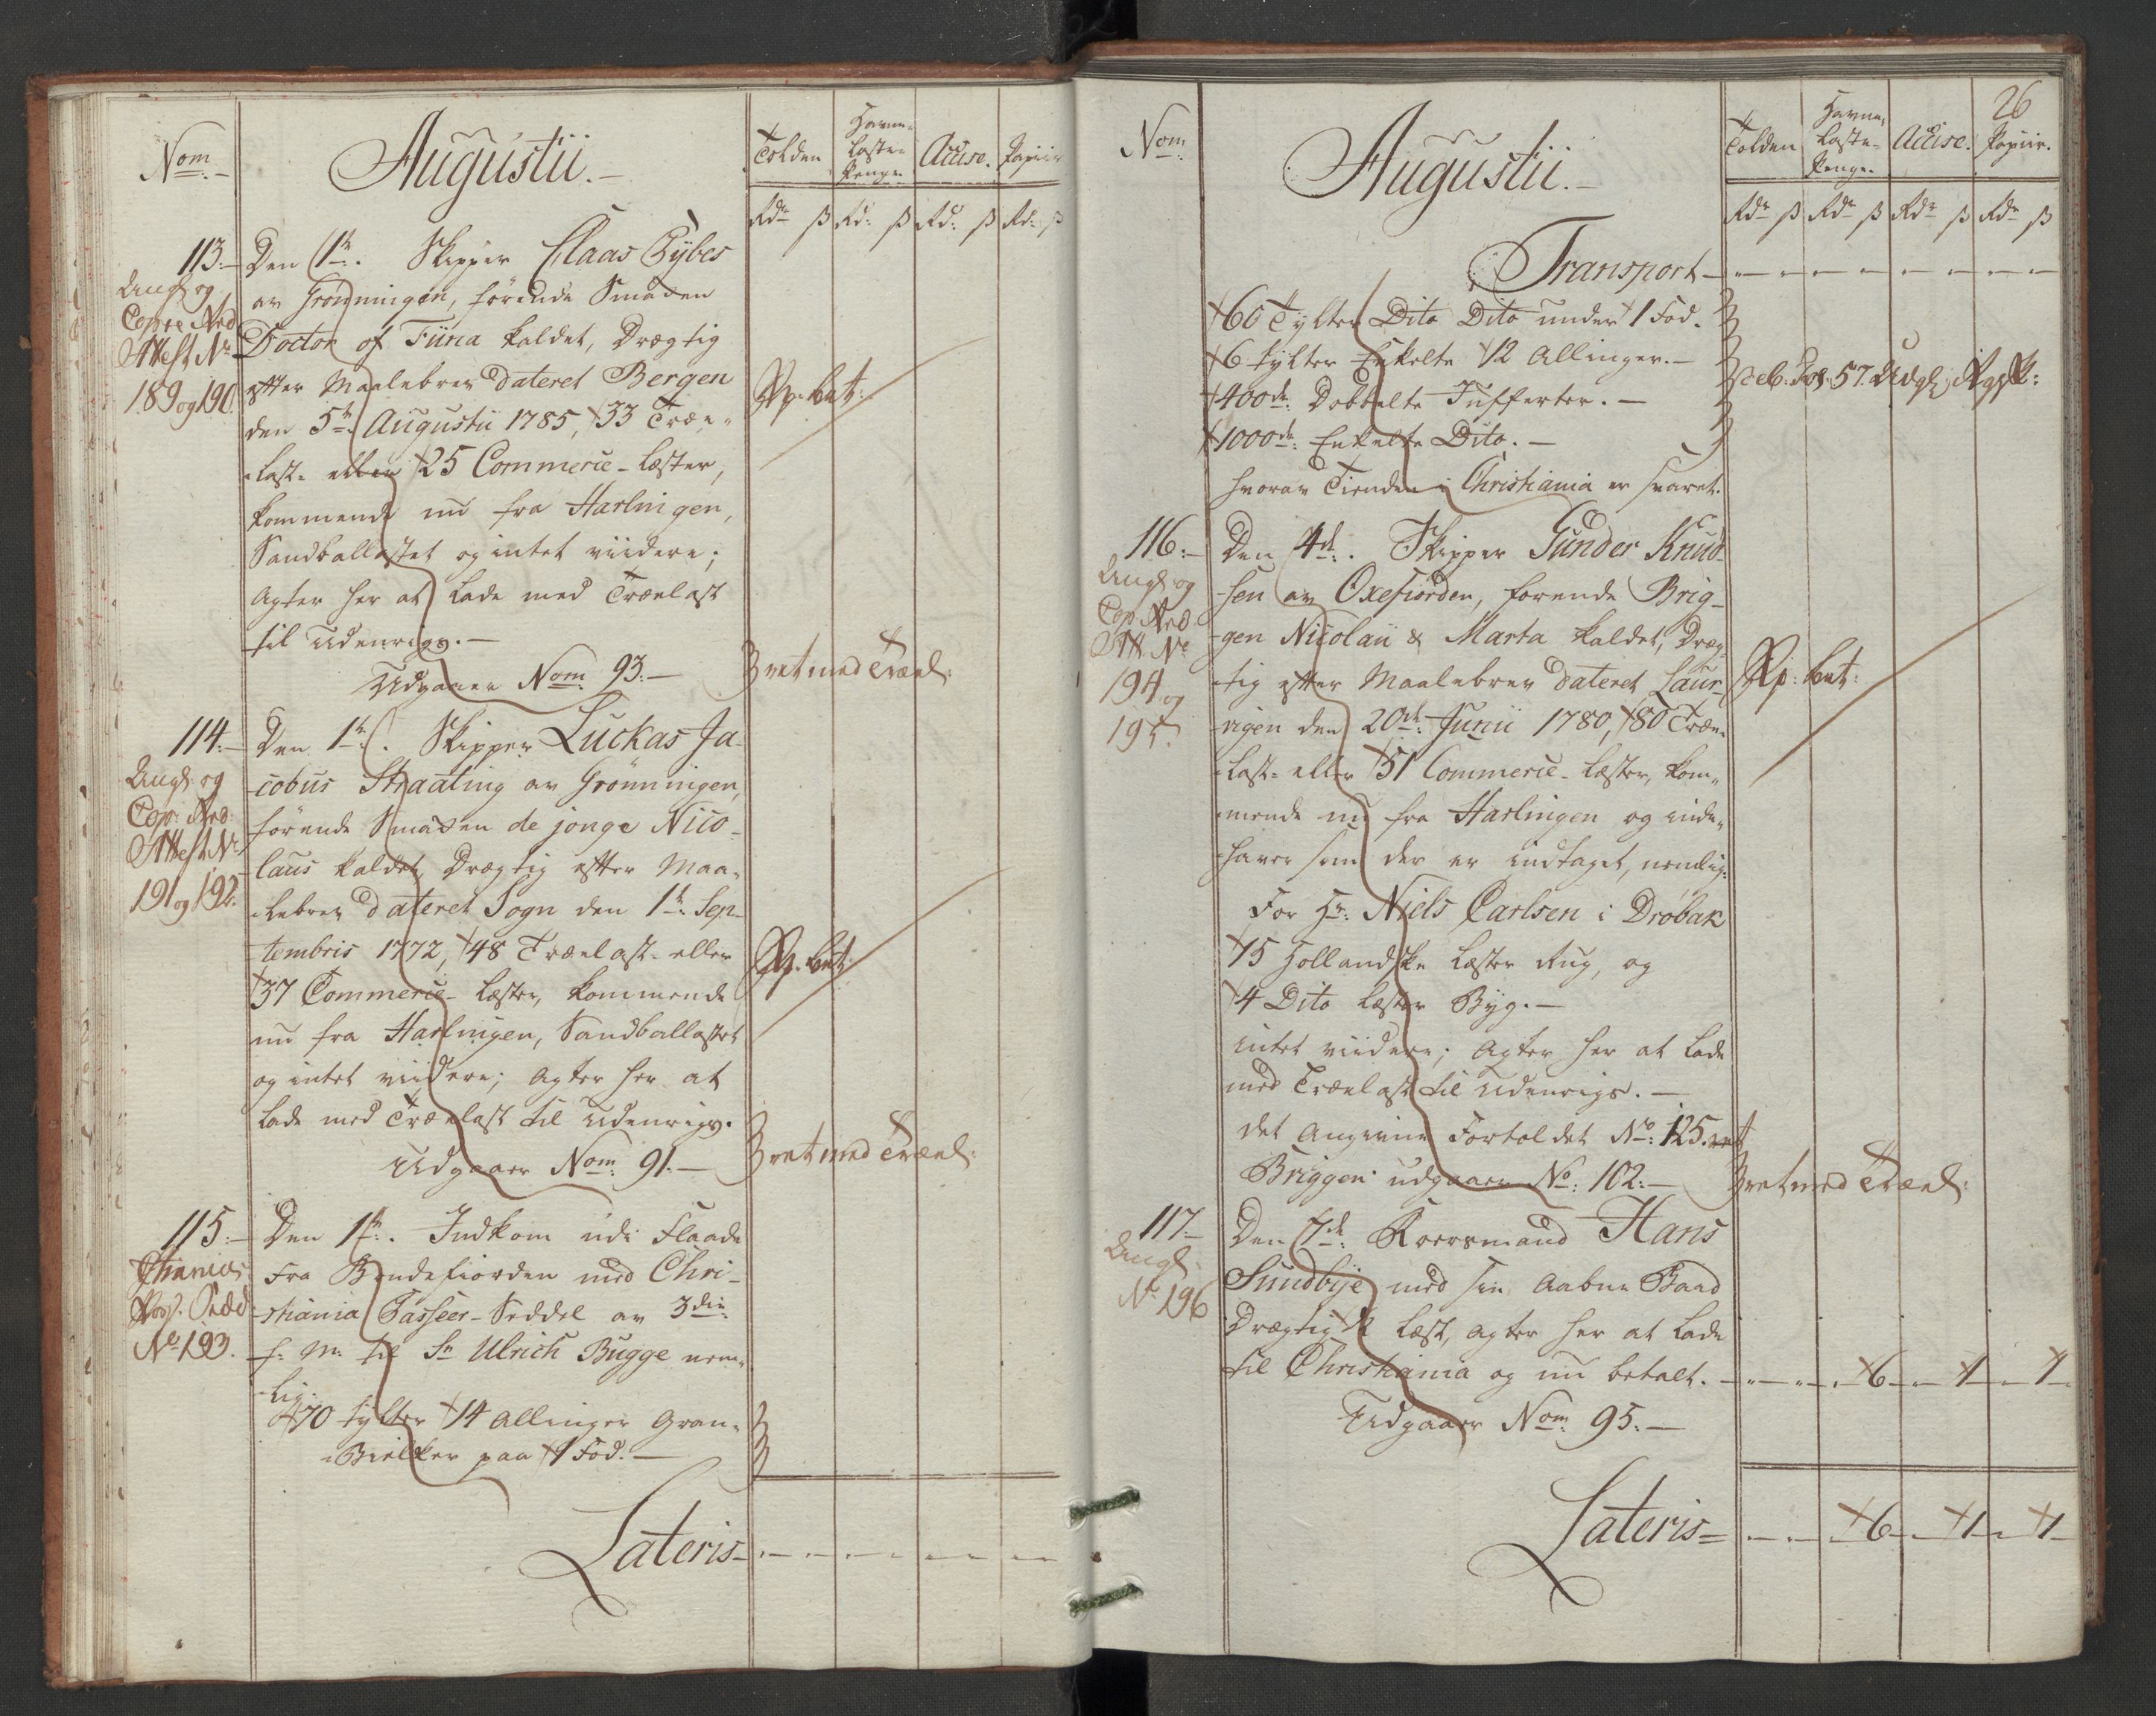 Nom
Augustii.
Tolden
Havne-
Laste-
Penge.
Accise.
Papiir
Rdr ß Rd: ß Rd: ß Rd: ß
113.
Angl: og
Copie Ved
Attest Nr
189 og 190.
Den 1te. Skipper Claas Tÿbes
av Grönningen, förende Smaken
Doctor of Füria kaldet, Drægtig
efter Maalebrev dateret Bergen
den 5te Augustii 1785, 33 Træe-
Last- eller 25 Commerce-Læster,
kommende nu fra Harlingen,
Sandballastet og intet viidere;
Agter her at Lade med Trælast
til Udenrigs.
Rp. bet:
Udgaaer Nom 93.
ret med Træl:
114.
Angl: og
Cop: Ved:
Attest Nr
191 og 192.
Den 1te. Skipper Luckas Ja-
cobus Straating av Grönningen,
förende Smaken de jonge Nico-
laus kaldet, Drægtig efter Maa-
lebrev dateret Sogn den 1te Sep-
tembris 1772, 48 Trælast- eller
37 Commerce-Læster, kommende
nu fra Harlingen, Sandballastet
og intet viidere; Agter her at
Lade med Trælast til Udenrigs.
Rp. bet:
Udgaaer Nom 91.
ret med Træl:
115.
Chania
Pass. Sedd
No 193.
Den 1te. Indkom udi Flaade
fra Bondefiorden med Chri-
stiania Passeer-Seddel av 3die
f: M: til Sr Ulrich Bugge nem-
lig:
70 tylter 14 Allinger Gran-
Bielker paa 1 Fod.
Lateris
26
Nom
Augustii.
Tolden
Havne-
Laste-
Penge.
Accise.
Papiir.
Rdr ß Rdr ß Rdr ß Rdr ß
Transport
60 Tylter Dito Dito under 1 Fod.
6 tylter Enkelte 12 Allinger.
400de Dobbelte Jufferter.
1000de Enkelte Dito.
hvorav Tienden i Christiania er svaret.
Fol: 57.
116.
Angl: og
Cop Ved
Att Nr
194 og
195.
Den 4de. Skipper Gunder Knud-
sen av Oxefiorden, förende Brig-
gen Nicolaii & Marta kaldet, Dræg-
tig efter Maalebrev dateret Laur-
vigen den 20de Junii 1780, 80 Træe-
Last- eller 51 Commerce-Læster, kom-
mende nu fra Harlingen og inde-
haver som der er indtaget, nemlig:
For Hr: Niels Carlsen i Dröbak
15 Hollandske Læster Rug, og
4 Dito Læster Byg.
intet viidere; Agter her at Lade
med Trælast til Udenrigs.
det Angivne Fortoldet No: 125. ret
Briggen udgaaer No: 102.
Rp: bet:
ret med Træl:
117.
Angl:
Nr 196
Den 7de Roersmand Hans
Sundbÿe med sin Aabne Baad
Drægtig 1 Læst, agter her at Lade
til Christiania og nu betalt. 6 1 1
Udgaaer Nom 95.
Lateris 6 1 1